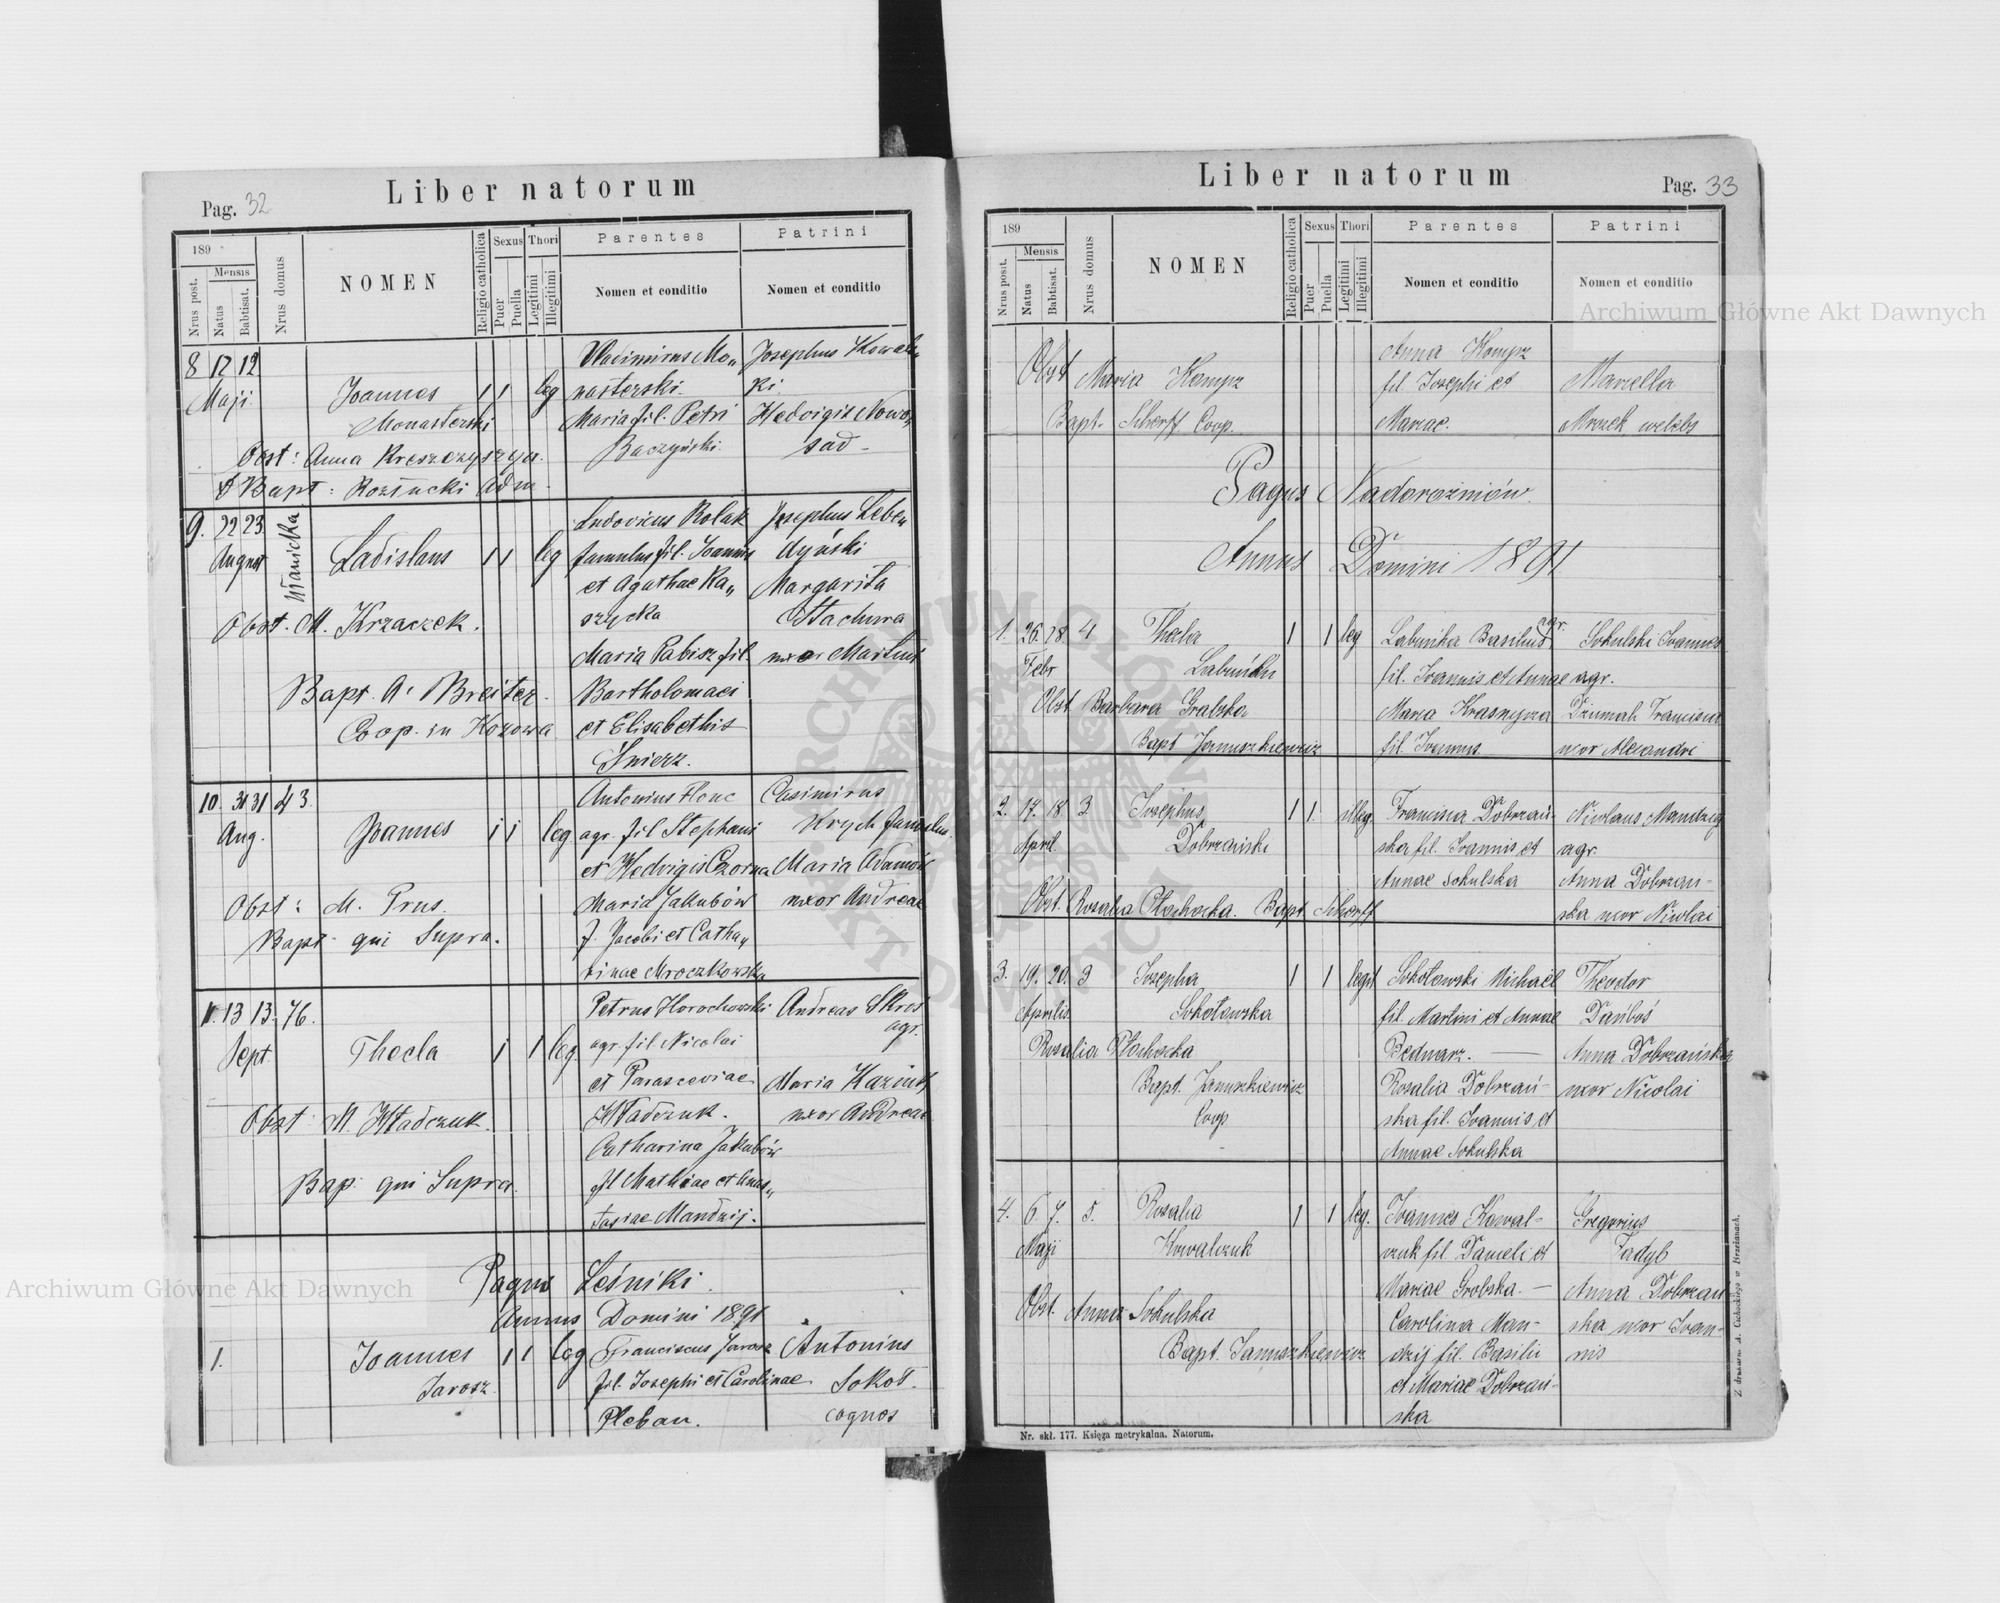 Liber natorum
Pag. 32
189
Mensis
Nrus post.
Natus
Babtisat.
Nrus domus
NOMEN
Religio catholica
Sexus
Puer
Puella
Thori
Legitimi
Illegitimi
Parentes
Nomen et conditio
Patrini
Nomen et conditio
8 17 19 Wladimirus Mo„ Josephus Kowals„
Maji Joannes 1 1 leg nasterski. ki.
Monasterski Maria fil. Petri Hedvigis Nowo„
Obst: Anna Kreszczyszyn. Baczyński. sad
Bapt: Rozłucki Adm.
9. 22 23 Ludovicus Rolak Josephus Leben„
August Ladislaus 1 1 leg famulus fil. Joannis dyński
et Agathae Ka„ Margarita
Obst. M. Krzaczek. szycka Stachura
Maria Pabisz fil. uxor Martini
Bapt. A. Breiter Bartholomaei
Coop. in Kozowa et Elisabethis
Śnierz.
10. 31 31 43. Antonius Flouc Casimirus
Aug. Joannes 1 1 leg agr. fil Stephani Krych famulus.
et Hedvigis Czorna Maria Adamów
Obst: M. Prus. Maria Jakubów uxor Andreae
Bapt. qui Supra. f. Jacobi et Catha„
rinae Mroczkowska
11. 13 13 76. Petrus Horochowski Andreas Skres
Sept. Thecla 1 1 leg. agr. fil. Nicolai agr.
et Parasceviae Maria
Obst: M. Hładczuk. Hładczuk. uxor Andreae
Catharina Jakubów
Bap: qui Supra. fil Mathiae et Anas„
tasiae Mandzij.
Pagus Leśniki.
Annus Domini 1891
1. Joannes 1 1 leg Franciscus Jarosz Antonius
Jarosz fil. Josephi et Carolinae Sokoł.
Pleban. cognos
Liber natorum
Pag. 33
189
Mensis
Nrus posit.
Natus
Babtisat.
Nrus domus
NOMEN
Religio catholica
Sexus
Puer
Puella
Thori
Legitimi
Illegitimi
Parentes
Nomen et conditio
Patrini
Nomen et conditio
Anna
Obst Maria fil. Josephi et Marcella
Bapt. Scherff Coop. Mariae. Mrozek
Pagus Nadorożniów
Annus Domini 1891
1. 26. 28. 4 Thecla 1 1 leg Labunka Basilius agr. Sokulski Ioannes
Febr fil. Ioannis et Annae agr.
Obst Barbara Gralska Maria Krasnycza Dziumak Francisca
Bapt Januszkiewicz fil. Ioannis uxor Alexandri
2. 17. 18 3 Josephus 1 1. illeg. Francisca Dobrzań- Nicolaus Mandzij
April. Dobrzański ska fil. Ioannis et agr.
Annae Sokulska Anna Dobrzań-
Obst. Rosalia Płochocka. Bapt Scherff ska uxor Nicolai
3. 19. 20. 3 Josepha 1 1 legit Sokołowski Michael Theodor
Aprilis Sokołowska fil. Martini et Annae Dańboś
Rosalia Płochocka Bednarz. — Anna Dobrzańska
Bapt. Januszkiewicz Rosalia Dobrzań- uxor Nicolai
Coop ska fil. Ioannis et
Annae Sokulska
4. 6. 7. 5. Rosalia 1 1 leg. Ioannes Kowal- Gregorius
Maji Kowalczuk czuk fil. Danieli et Fadyb
Mariae Grobska. — Anna Dobrzań
Obst. Anna Sokulska Carolina Man- ska uxor Ioan-
Bapt. Januszkiewicz dzij fil. Basilii nis
et Mariae Dobrzań-
ska
Nr. skł. 177. Księga metrykalna. Natorum.
Archiwum Główne Akt Dawnych
Archiwum Główne Akt Dawnych
ARCHIWUM GŁÓWNE AKT DAWNYCH